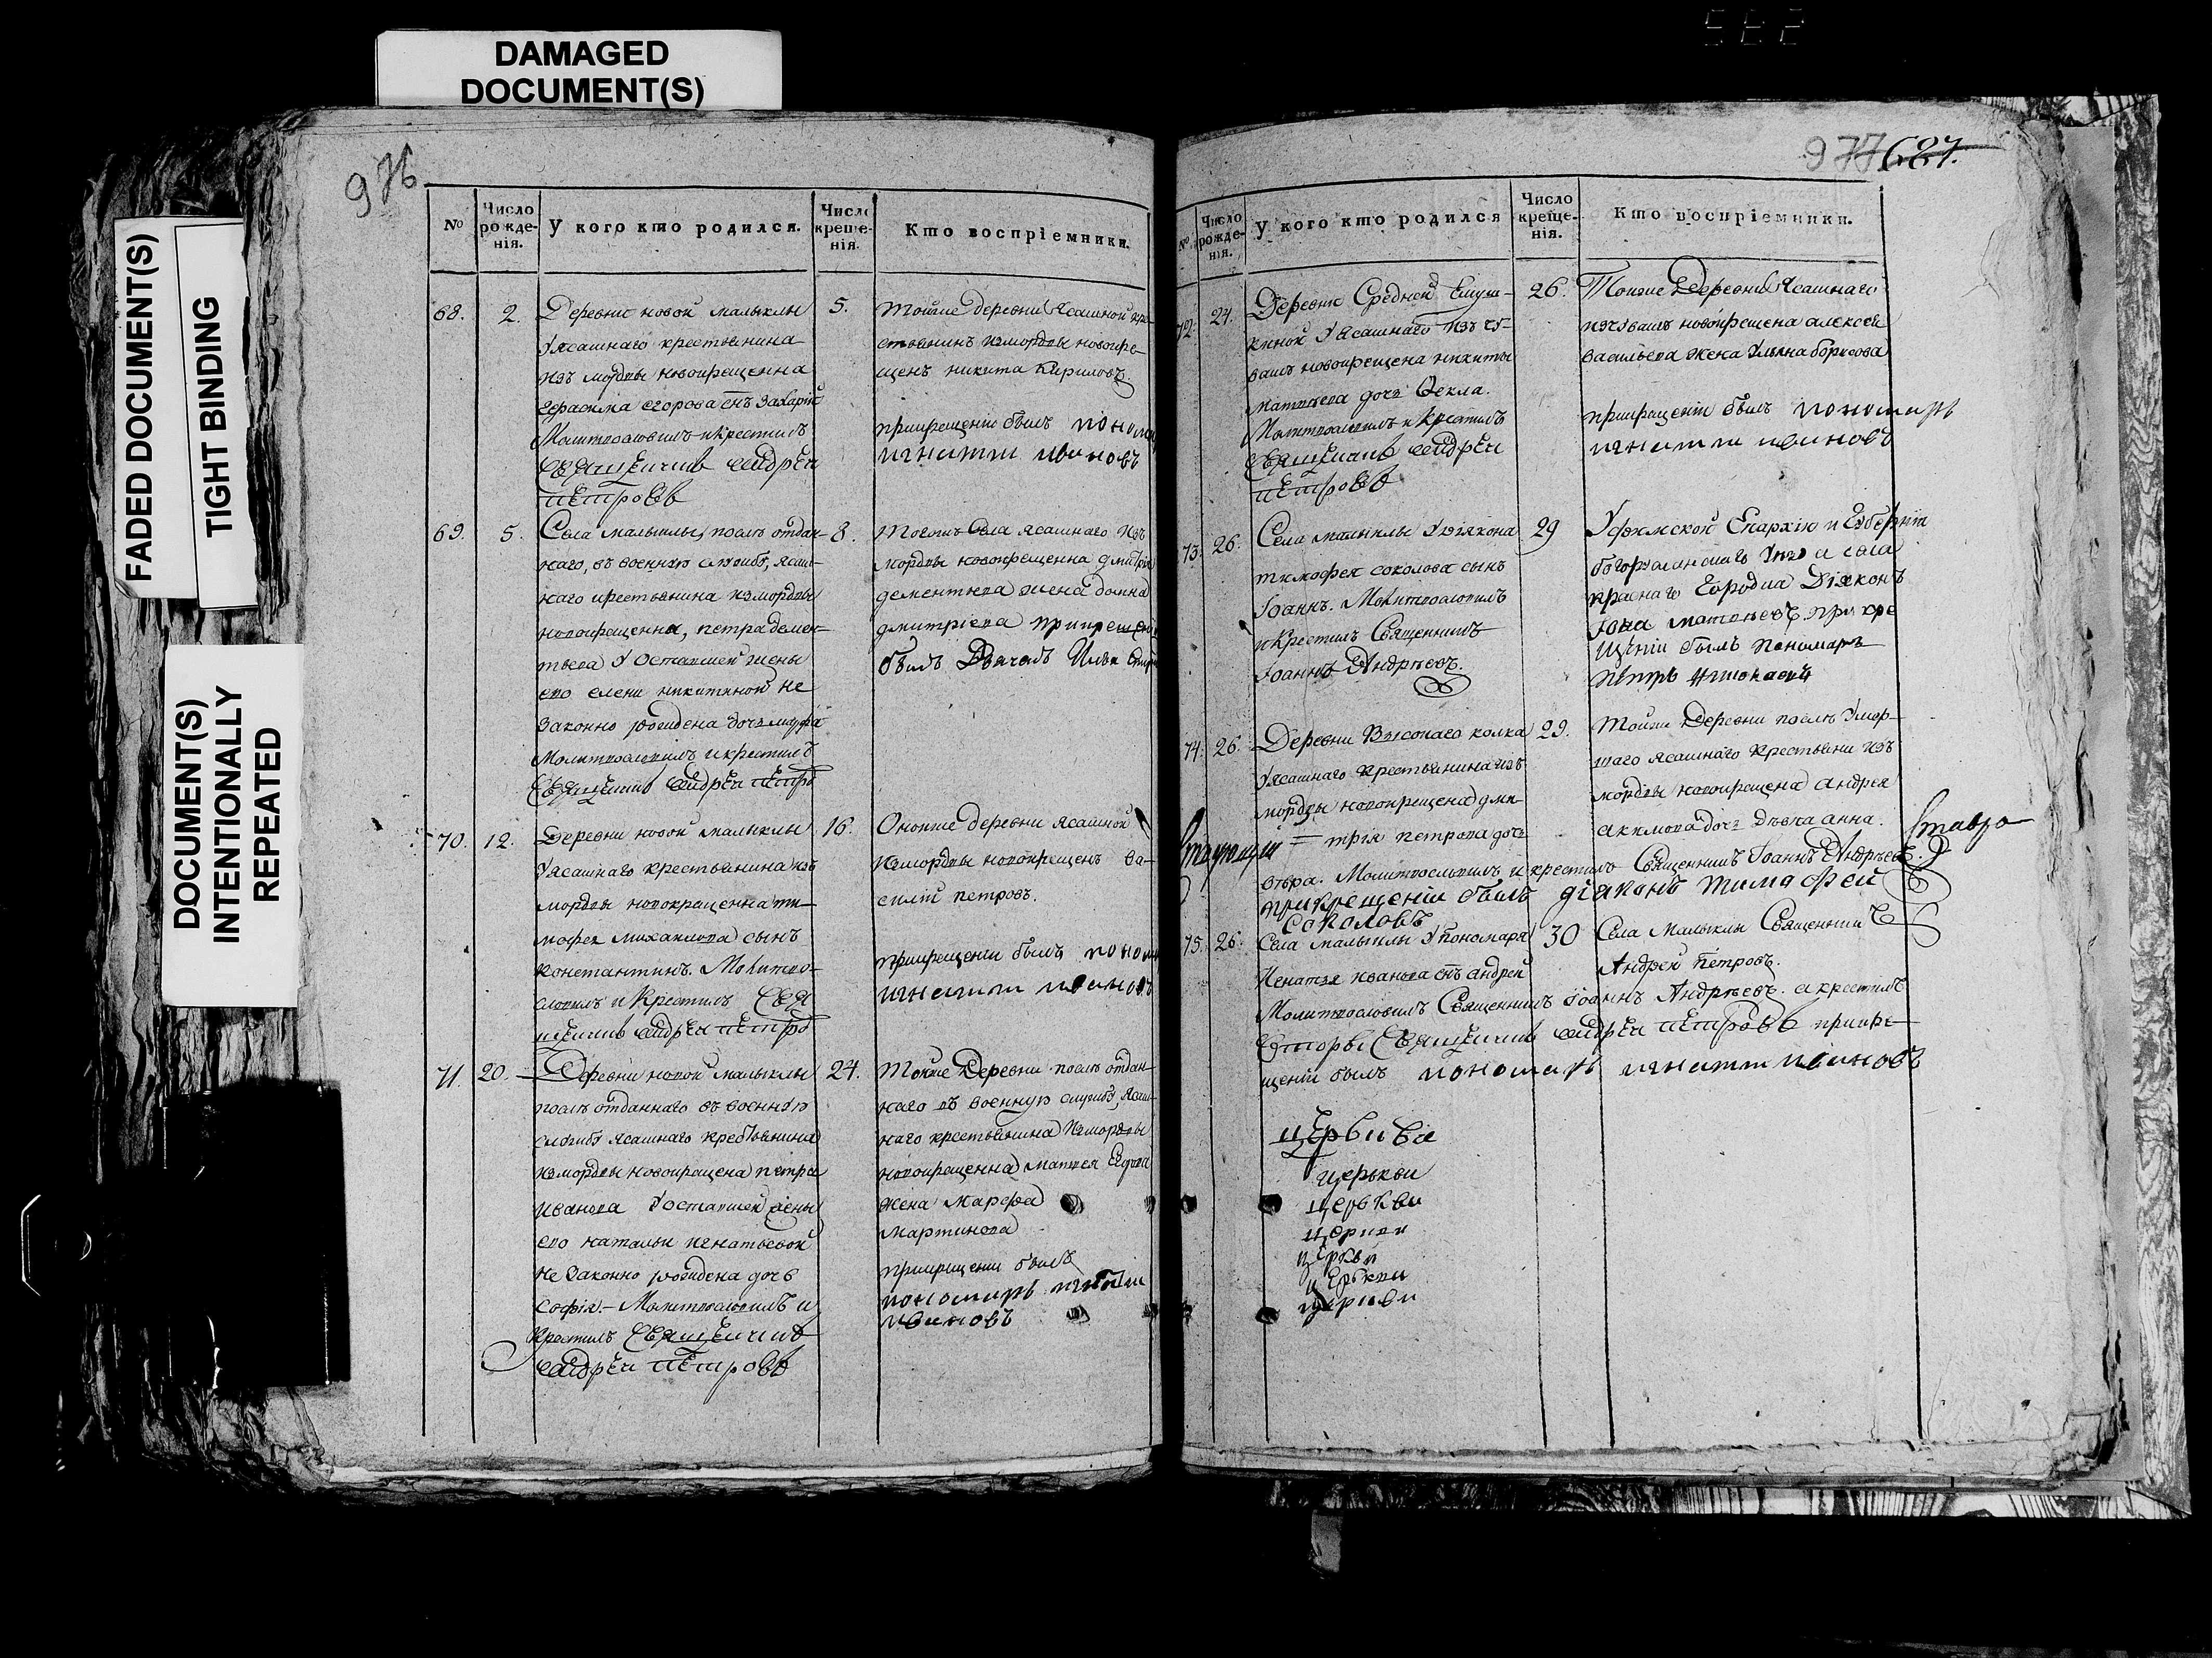 582
DAMAGED
DOCUMENT(S)
FADED DOCUMENT(S)
TIGHT BINDING
DOCUMENT(S)
INTENTIONALLY
REPEATED
976
№
Число рожденія.
У кого кто родился.
Число крещенія.
Кто воспріемники.
68.
2.
Деревни новой малыклы
У ясашнаго крестьянина
изъ мордвы новокрещенна
герасима егорова снъ Захарій
Молитвословилъ и крестилъ
Священникъ Андрей
Петровъ
5.
Тойже деревни Ясашной кре-
стьянинъ измордвы новокре-
щенъ никита Кириловъ
прикрещеніи былъ
игнатий ивановъ
69.
5.
Села малыклы, послѣ отдан-
наго, въ военную службу, ясаш-
наго крестьянина измордвы
новокрещенна, петра демен-
тьева У оставшей жены
его елены никитиной не
законно рождена дочь марфа
Молитвословилъ и крестилъ
Священникъ Андрей
8.
Тогожъ Села ясашнаго изъ
мордвы новокрещенна дмитрія
дементьева жена домна
дмитріева
былъ Дьячекъ Илья
70.
12.
Деревни новой малыклы
У ясашнаго крестьянина изъ
мордвы новокрещенна ти-
мофея михаилова сынъ
константинъ. Молитво-
словилъ и крестилъ Свя
щенникъ Андрей
16.
Оной же деревни ясашной
измордвы новокрещенъ Ва-
силій петровъ.
прикрещеніи былъ
игнатий ивановъ
71.
20.
Деревни новой малыклы
послѣ отданнаго въ военную
службу ясашнаго крестьянина
измордвы новокрещена петра
иванова У оставшей жены
его натальи игнатьевой
не законно рождена дочь
софія. Молитвословилъ и
крестилъ Священникъ
Андрей Петровъ
24.
Тойже Деревни послѣ отдан-
наго въ военную службу, ясаш-
наго крестьянина измордвы
новокрещенна матвея
жена Марфа
мартинова
прикрещеніи былъ
пономарь
ивановъ
977 687.
№
Число рожденія.
У кого кто родился
Число крещенія.
Кто воспріемники.
72.
24.
Деревни Средней
киной У ясашнаго изъ чу-
вашъ новокрещена никиты
матвѣева дочь Ѳекла.
Молитвословилъ и крестилъ
Священникъ Андрей
Петровъ
26.
Тойже Деревни Ясашнаго
изъ чувашъ новокрещена алексѣя
васильева жена Ульяна борисова
прикрещеніи былъ пономарь
игнатий ивановъ
73.
26.
Села малыклы У діякона
тимофея соколова сынъ
Іоаннъ. Молитвословилъ
и крестилъ Священникъ
Іоаннъ Андрѣевъ.
29
Уфимской Епархіи и Губерніи
красного городка Діяконъ
при кре
щеніи былъ пономарь
74.
26.
Деревни Высокаго колка
У ясашнаго крестьянина изъ
мордвы новокрещена дми-
трія петрова дочь
29.
Тойже Деревни послѣ Умер-
шаго ясашнаго крестьянина изъ
мордвы новокрещена андрея
акимова дочь Дѣвка анна.
Молитвословилъ и крестилъ Священникъ Іоаннъ Андрѣевъ.
прикрещеніи былъ діаконъ тимофей
Соколовъ
75.
26.
Села малыклы У пономаря
Игнатія иванова снъ андрей
30
Села Малыклы Священникъ
Андрей петровъ.
Молитвословилъ Священникъ Іоаннъ Андрѣевъ. а крестилъ
Священникъ Андрей Петровъ прикре-
щеніи былъ пономарь игнатий ивановъ
церькви
церькви
церкви
церькви